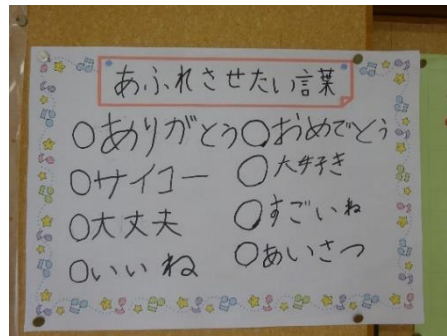 あふれさせたい言葉
○ありがとう○おめでとう
○サイコー ○大好き
○大丈夫 ○すごいね
○いいね ○あいさつ